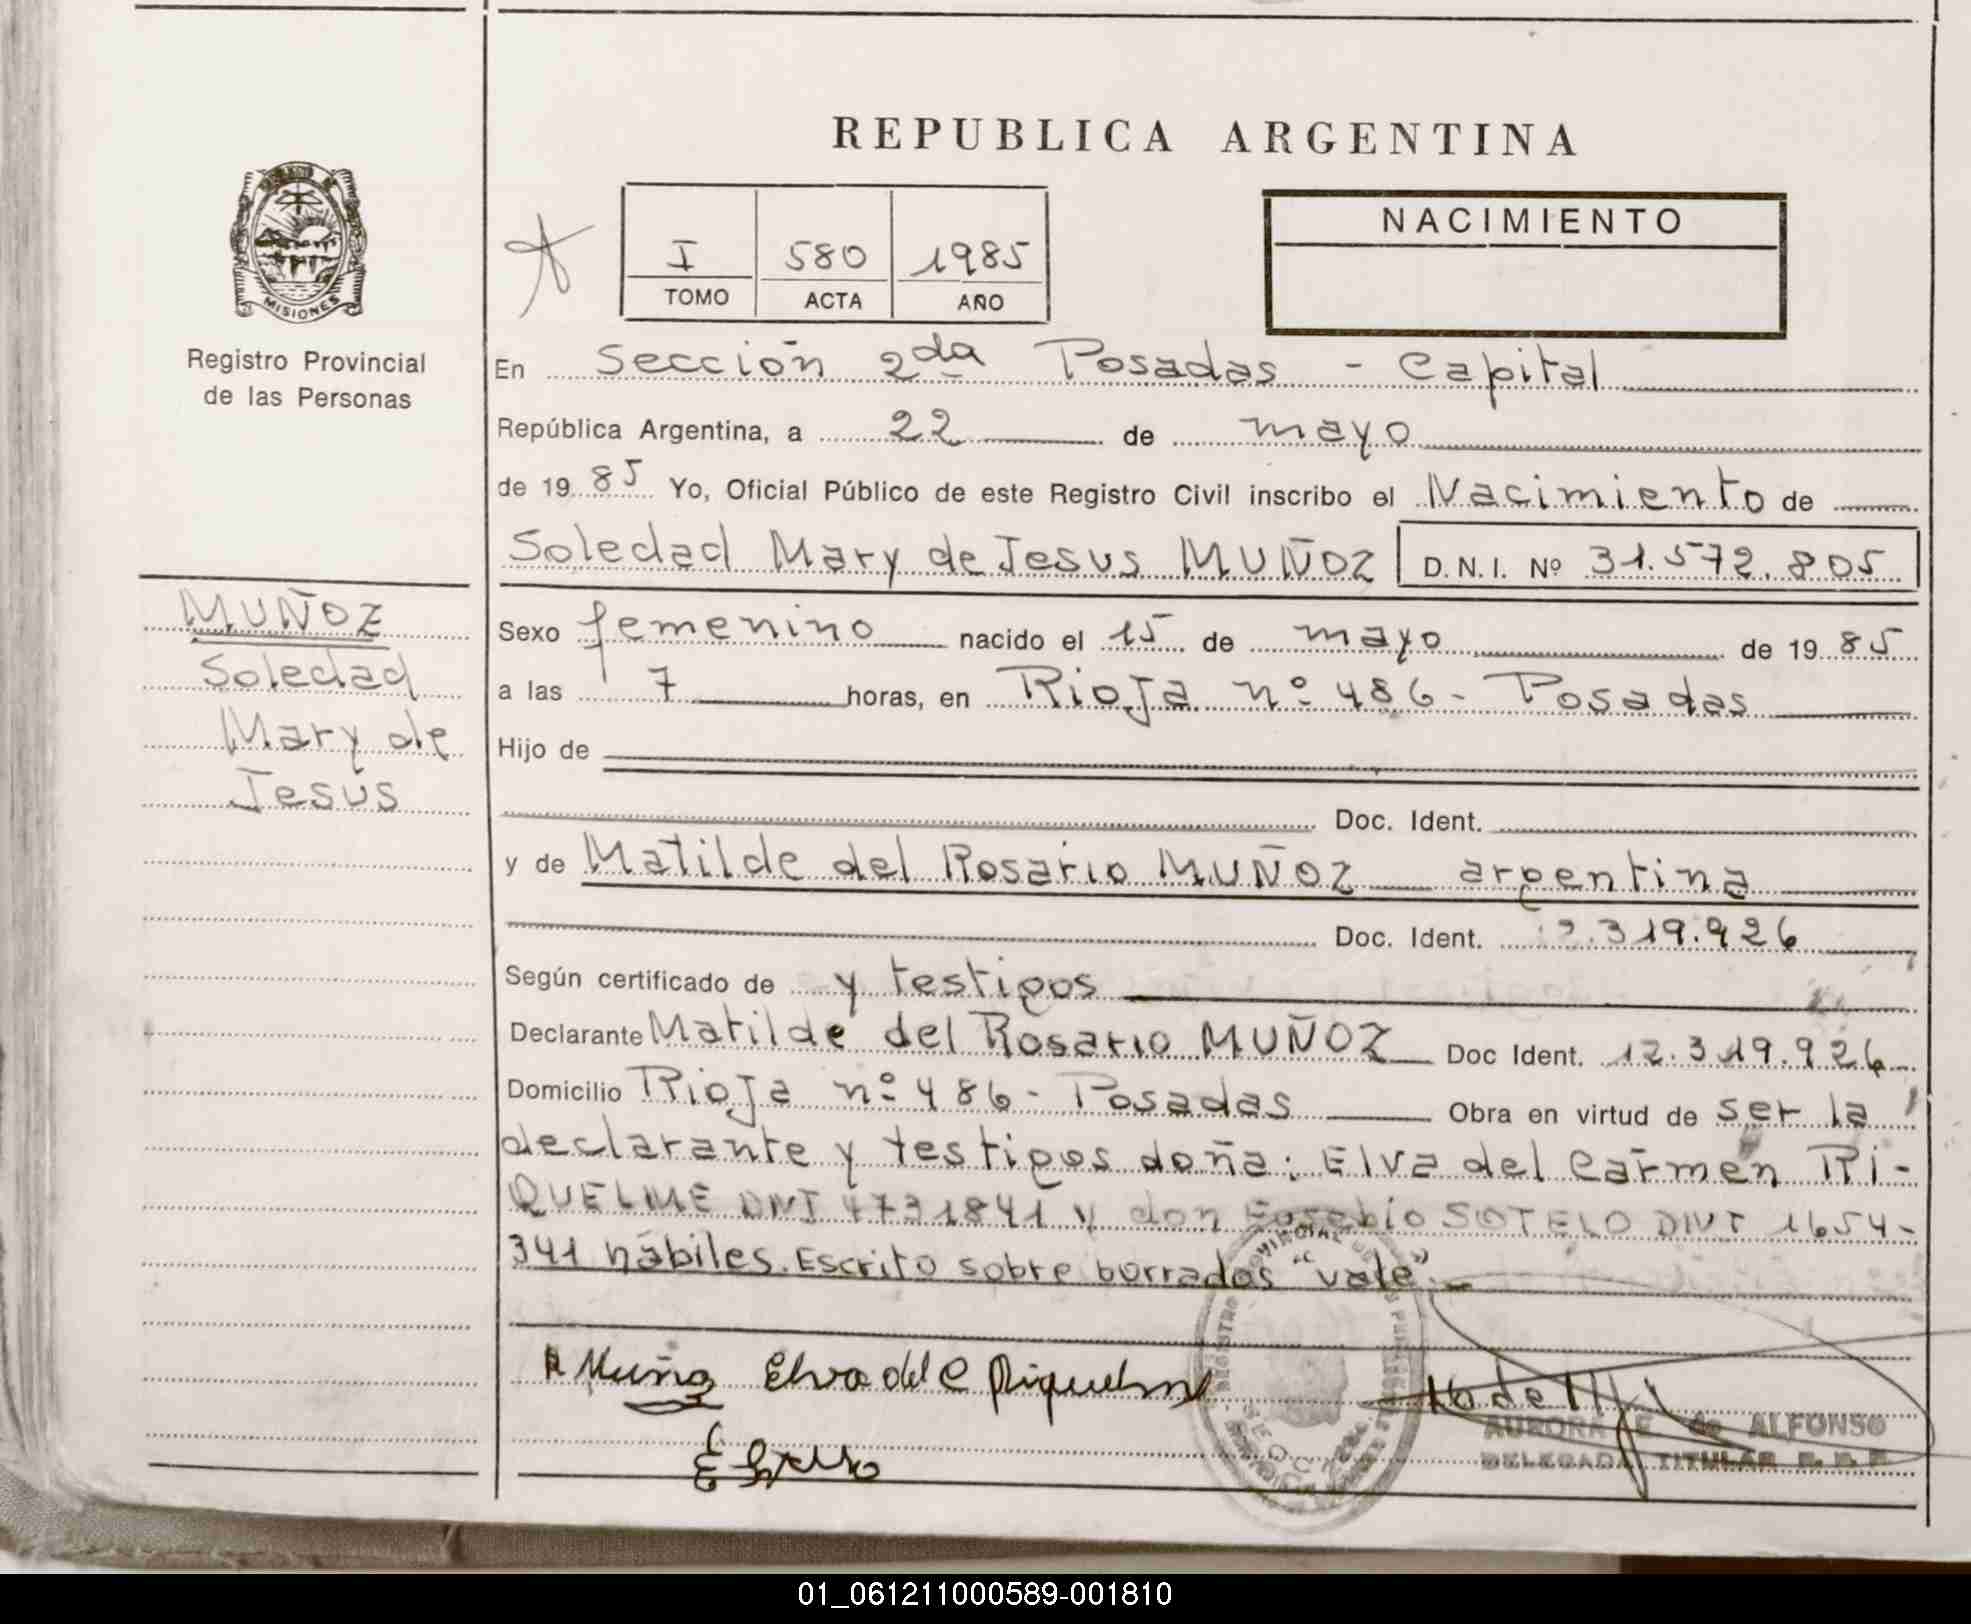 REPUBLICA ARGENTINA
MISIONES
Registro Provincial
de las Personas
I 580 1985
TOMO ACTA AÑO
NACIMIENTO
En Sección 2da Posadas - Capital
República Argentina, a 22 de mayo
de 1985 Yo, Oficial Público de este Registro Civil inscribo el Nacimiento de
Soledad Mary de Jesus MUÑOZ D.N.I. Nº 31.572.805
MUÑOZ
Soledad
Mary de
Jesús
Sexo femenino nacido el 15 de mayo de 1985
a las 7 horas, en Rioja nº 486 - Posadas
Hijo de
Doc. Ident.
y de Matilde del Rosario MUÑOZ argentina
Doc. Ident. 319.926
Según certificado de y testigos
Declarante Matilde del Rosario MUÑOZ Doc Ident. 12.319.926
Domicilio Rioja nº 486 - Posadas Obra en virtud de ser la
declarante y testigos doña: Elva del Carmen RI-
QUELME DNI 4731841 y don Eusebio SOTELO DNI 1654-
341 hábiles. Escrito sobre borrados "vale".-
R Muñoz Elva del C Riquelme
AURORA E de ALFONSO
DELEGADA TITULAR R. P. P.
01_061211000589-001810